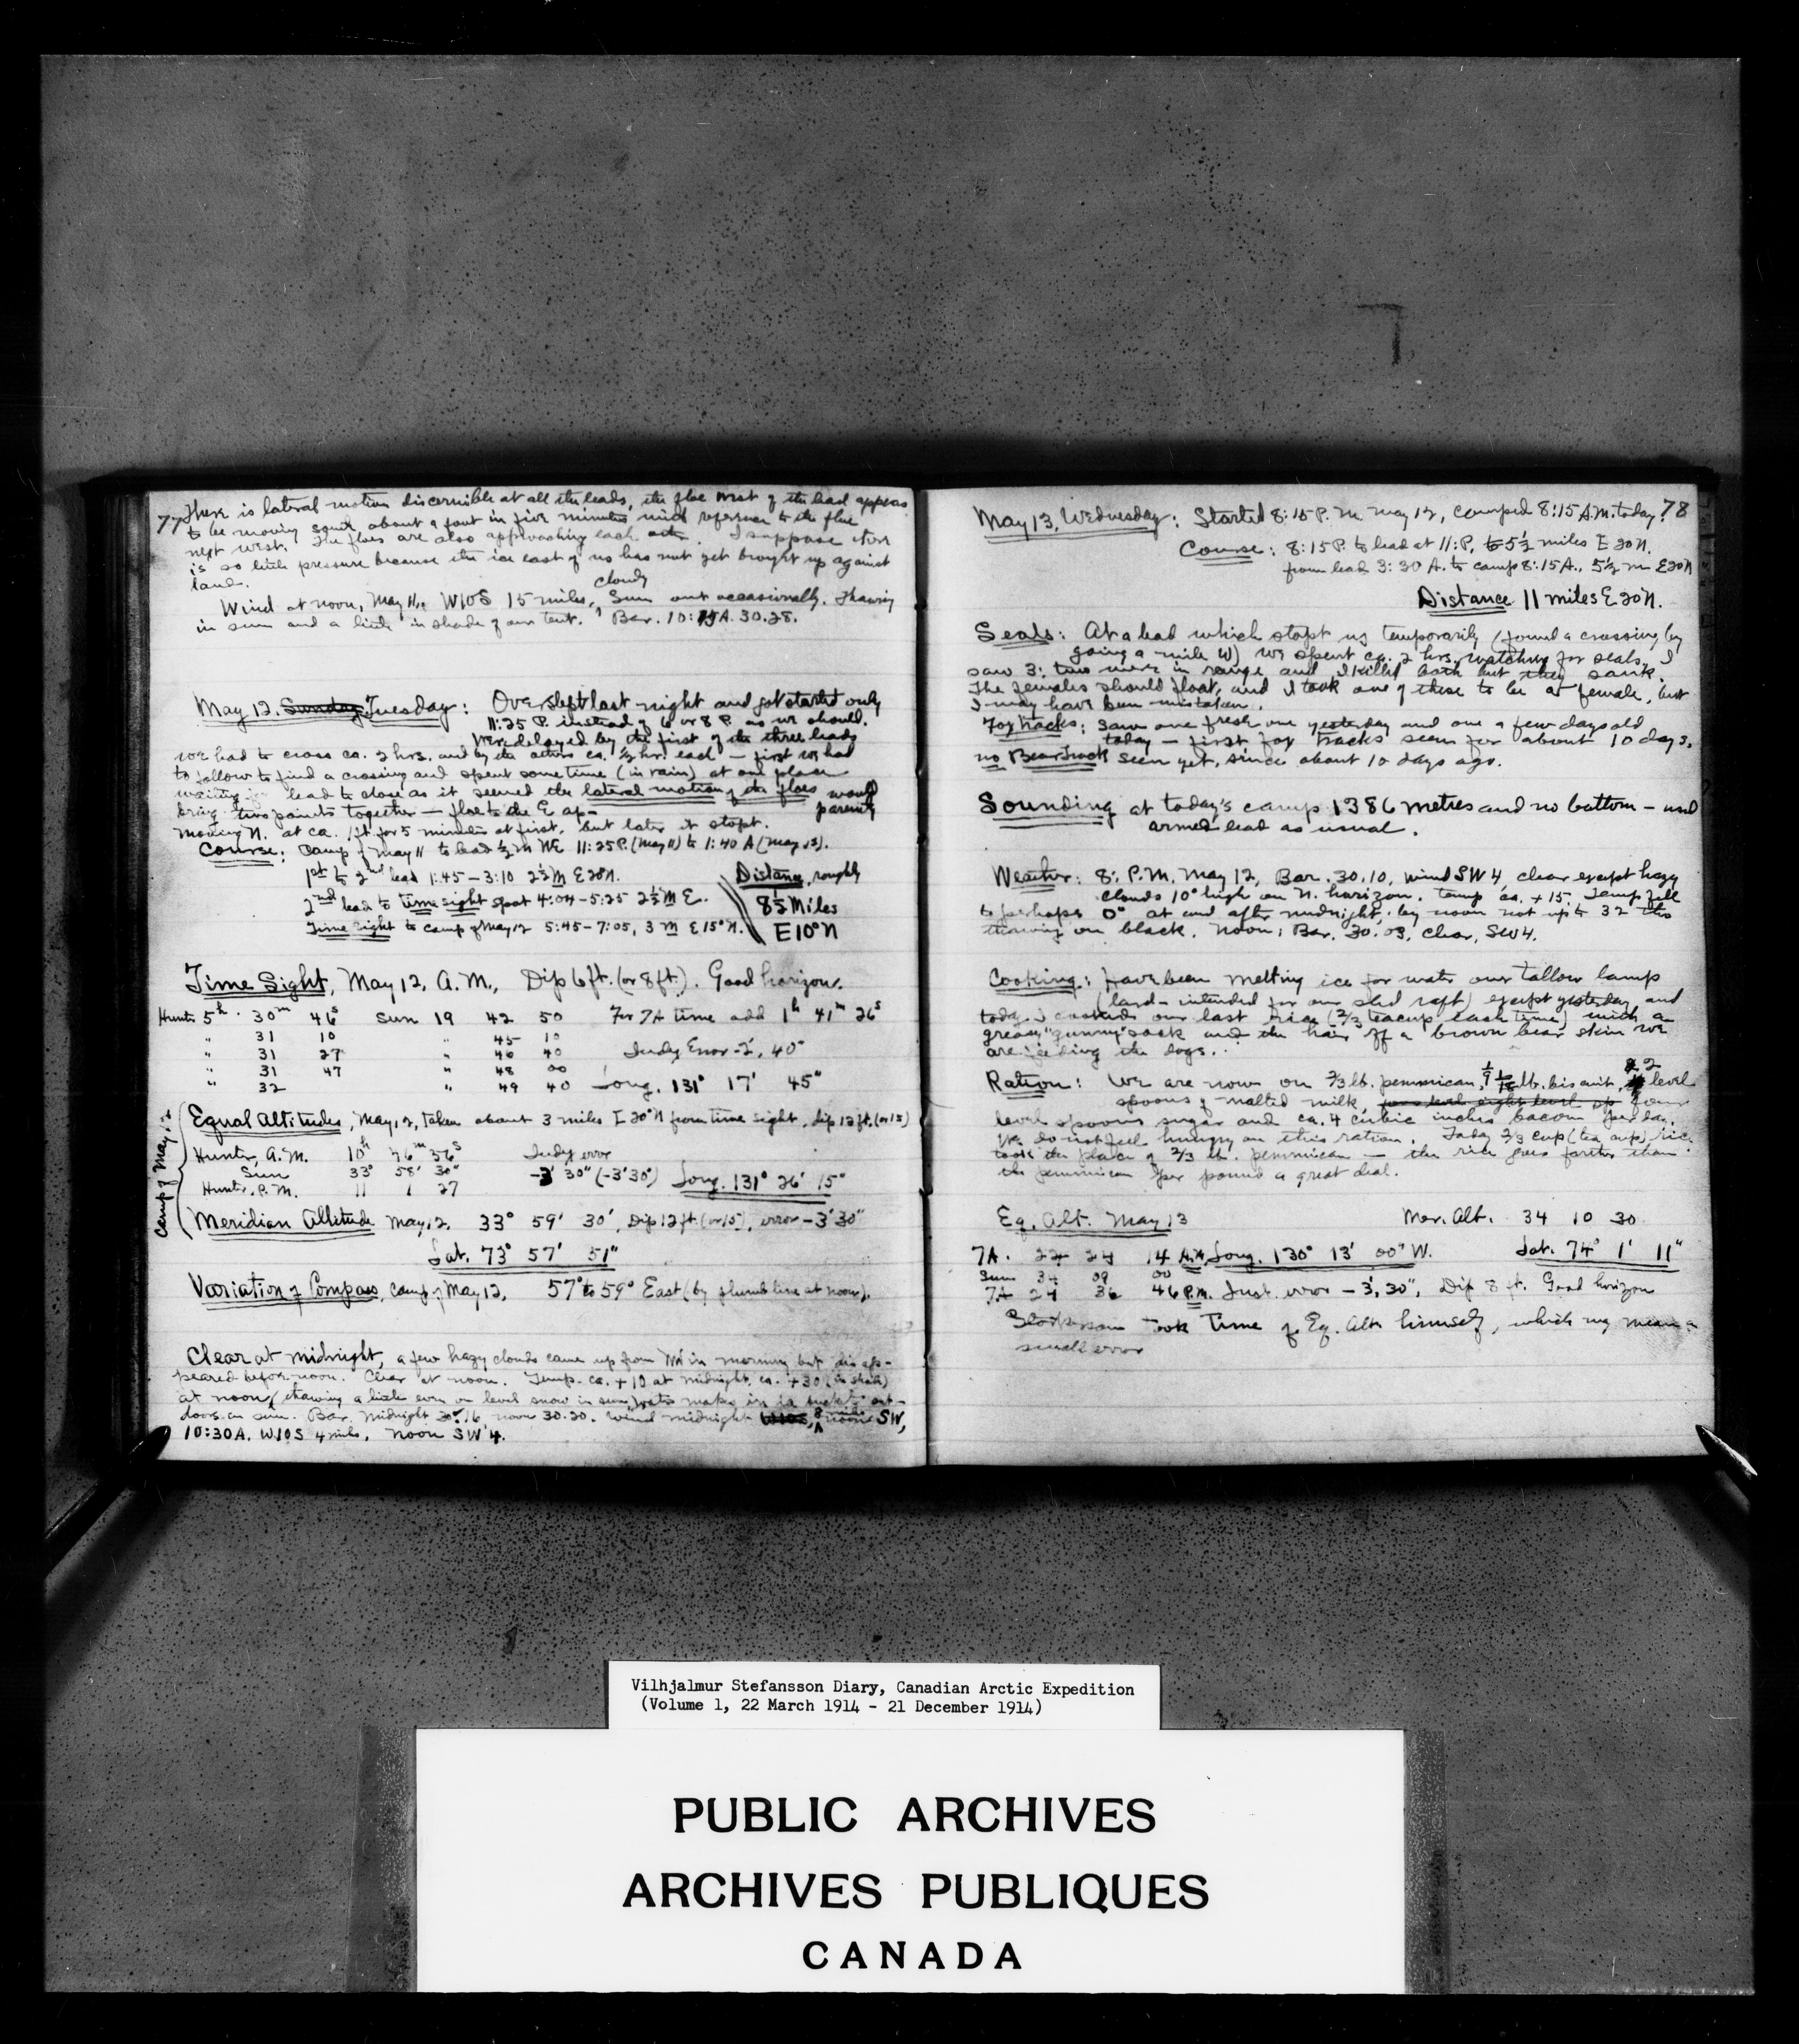 77 There is lateral motion discernible at all the leads, the floe west of the lead appears
to be moving south about a foot in five minutes with reference to the floe
next west. The floes are also approaching each other. I suppose there
is so little pressure because the ice east of us has not yet brought up against
land.
cloudy
Wind at noon, May 11, W10S 15 miles, Sun out occasionally. Thawing
in sun and a little in shade of our tent. Bar. 10:15A. 30.28.
May 12. Sunday Tuesday: Overslept last night and got started only
11:25 P. instead of 6 or 8 P. as we should.
Were delayed by the first of the three leads
we had to cross ca. 2 hrs. and by the others ca. ½ hr. each — first we had
to follow to find a crossing and spent some time (in rain) at one place
waiting for lead to close as it seemed the lateral motion of the floes would
bring two points together — floe to the E ap-parently
moving N. at ca. 1 ft. for 5 minutes at first, but later it stopt.
Course: Camp of May 11 to lead ½ m NE 11:25P. (May 11) to 1:40 A (May 12).
1st to 2nd lead 1:45 – 3:10 2½ M E20N.
2nd lead to time sight spot 4:04 – 5:25 2½ M E.
Time sight to camp of May 12 5:45 – 7:05, 3 m E15°N.
Distance, roughly
8½ Miles
E10°N
Time Sight, May 12, A.M., Dip 6 ft. (or 8 ft.). Good horizon.
Hunter 5h. 30m 46s Sun 19 42 50 For 7A time add 1h 41m 26s
" 31 10 " 45 10
" 31 27 " 46 40 Index Error -2', 40"
" 31 47 " 48 00
" 32 " 49 40 Long. 131° 17' 45"
Camp of May 12
Equal Altitudes, May 12, taken about 3 miles E20°N from time sight, dip 12 ft. (or 15)
Hunter, A.M. 10h 46m 56s Index error
Sun 33° 58' 30" -3' 30" (-3'30") Long. 131° 26' 15"
Hunter, P.M. 11 1 27
Meridian Altitude May 12, 33° 59' 30", Dip 12 ft. (or 15), error -3'30"
Lat. 73° 57' 51"
Variation of Compass, camp of May 12, 57° to 59° East (by plumb line at noon).
Clear at midnight, a few hazy clouds came up from NW in morning but disap-
peared before noon. Clear at noon. Temp. ca. +10 at midnight, ca. +30 (in shade)
at noon (thawing a little even on level snow in sun, water makes in buckets out-
doors in sun. Bar. midnight 30.16, noon 30.20. Wind midnight W10S, 8 miles SW,
10:30A. W10S 4 miles, noon SW 4.
78
May 13, Wednesday: Started 8:15 P.M. May 12, camped 8:15 A.M. today.
Course: 8:15P. to lead at 11:P. to 5½ miles E20N.
from lead 3:30 A. to camp 8:15A., 5½ m E20N
Distance 11 miles E20N.
Seals: At a lead which stopt us temporarily (found a crossing by
going a mile W) we spent ca. 2 hrs. watching for seals. I
saw 3: two were in range and I killed both but they sank.
The females should float, and I took one of these to be a female, but
I may have been mistaken.
Fox tracks: Saw one fresh one yesterday and one a few days old
today — first fox tracks seen for about 10 days.
no Bear track seen yet, since about 10 days ago.
Sounding at today's camp 1386 metres and no bottom – used
armed lead as usual.
Weather: 8: P.M. May 12, Bar. 30.10, wind SW 4 clear except hazy
clouds 10° high on N. horizon. Temp ca. +15. Temp fell
to perhaps 0° at and after midnight, by noon not up to 32 tho
thawing on black. Noon: Bar. 30.03, clear, SW4.
Cooking: have been melting ice for water our tallow lamp
(lard – intended for our sled raft) except yesterday and
today I cooked our last rice (2/3 teacup each time) with a
greasy "gunny" sack and the hair off a brown bear skin we
are feeding the dogs.
Ration: We are now on 2/3 lb. pemmican, 1/9 lb. biscuit, 2 level
spoons of malted milk, four
level spoons sugar and ca. 4 cubic inches bacon per day.
We do not feel hungry on this ration. Today 2/3 cup (tea cup) rice
took the place of 2/3 lb. pemmican — the rice goes farther than
the pemmican per pound a great deal.
Eq. Alt. May 13 Mer. Alt. 34 10 30
7A. 22 24 14 A.M. Long. 130° 13' 00" W. Lat. 74° 1' 11"
Sun 34 09 00
7A 24 36 46 P.M. Inst. error -3', 30", Dip 8 ft. Good horizon
Storkerson took time of Eq. Alt. himself, which may mean a
small error
Vilhjalmur Stefansson Diary, Canadian Arctic Expedition
(Volume 1, 22 March 1914 - 21 December 1914)
PUBLIC ARCHIVES
ARCHIVES PUBLIQUES
CANADA